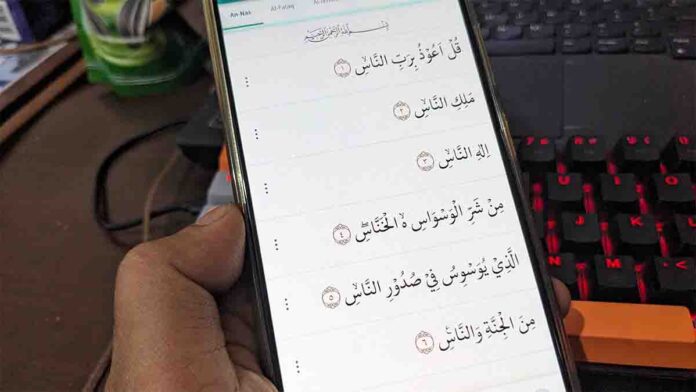 An-Nas Al-Falaq
بِسْمِ اللّٰهِ الرَّحْمٰنِ الرَّحِيْمِ
قُلْ اَعُوْذُ بِرَبِّ النَّاسِۙ ١
مَلِكِ النَّاسِۙ ٢
اِلٰهِ النَّاسِۙ ٣
مِنْ شَرِّ الْوَسْوَاسِ ەۙ الْخَنَّاسِۖ ٤
الَّذِيْ يُوَسْوِسُ فِيْ صُدُوْرِ النَّاسِۙ ٥
مِنَ الْجِنَّةِ وَالنَّاسِ ࣖ ٦
U I O
J K L
M